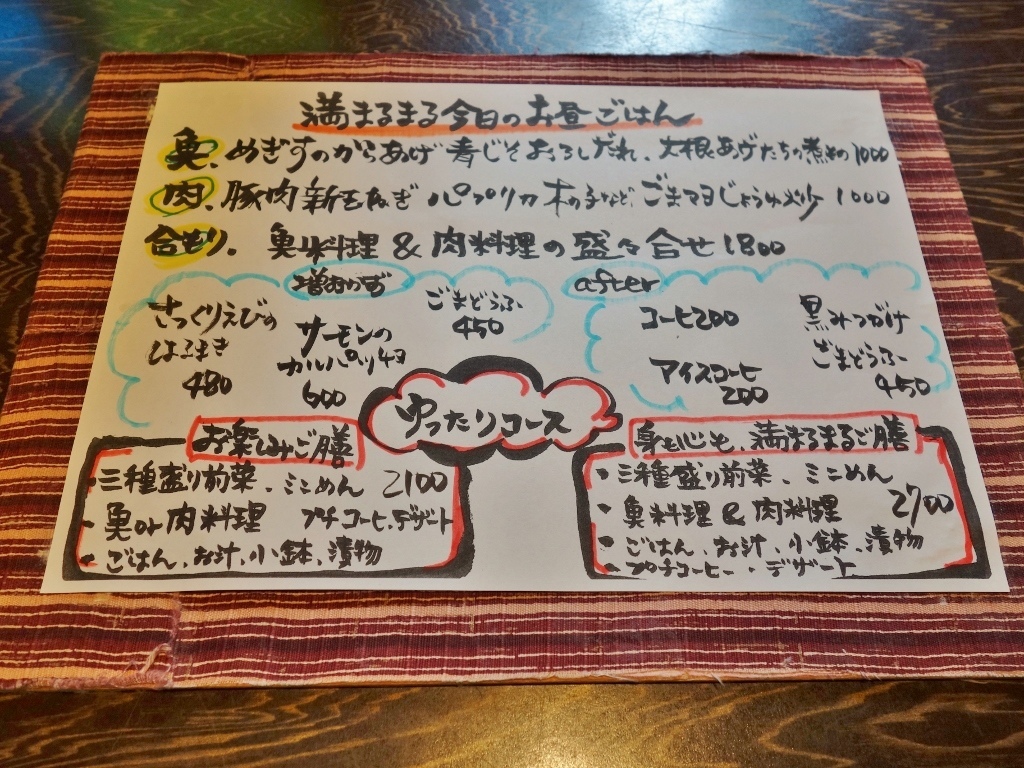 満まるまる今日のお昼ごはん
魚、めぎすのからあげ 青じそおろしだれ、大根あげたちの煮もの 1000
肉、豚肉 新玉ねぎ パプリカ 木の子など、ごまマヨじょうゆ炒 1000
合もり、魚料理 & 肉料理の盛り合せ 1800
増おかず
さっくりえびの
はるまき
480
サーモンの
カルパッチョ
600
ごまどうふ
450
after
コーヒ200
アイスコーヒ
200
黒みつがけ
ごまどうふ
450
ゆったりコース
お楽しみご膳
・三種盛り前菜、ミニめん 2100
・魚or肉料理 プチコーヒ、デザート
・ごはん、お汁、小鉢、漬物
身も心も、満まるまるご膳
・三種盛り前菜、ミニめん
・魚料理 & 肉料理 2700
・ごはん、お汁、小鉢、漬物
・プチコーヒー・デザート